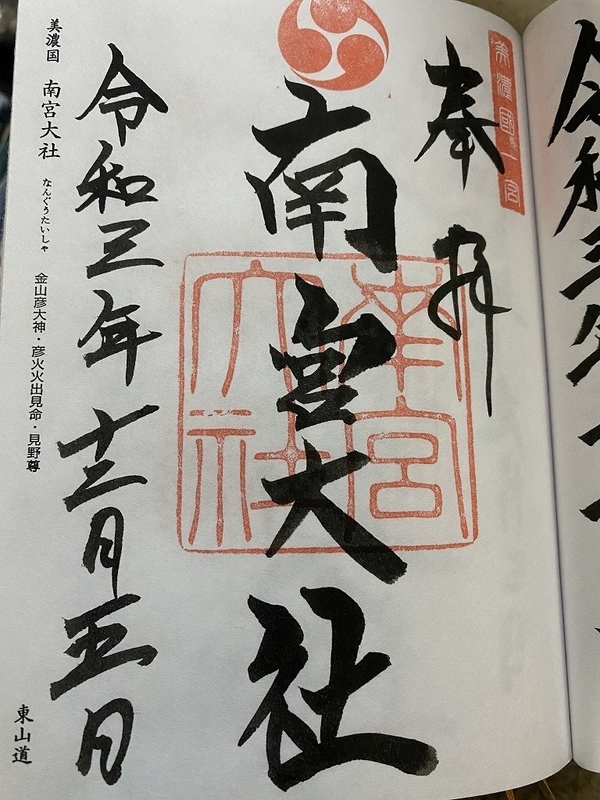 令和三年
美濃國一宮
奉拝
南宮大社
南宮大社
令和三年十二月五日
美濃国 南宮大社 なんぐうたいしゃ 金山彦大神・彦火火出見命・見野尊 東山道